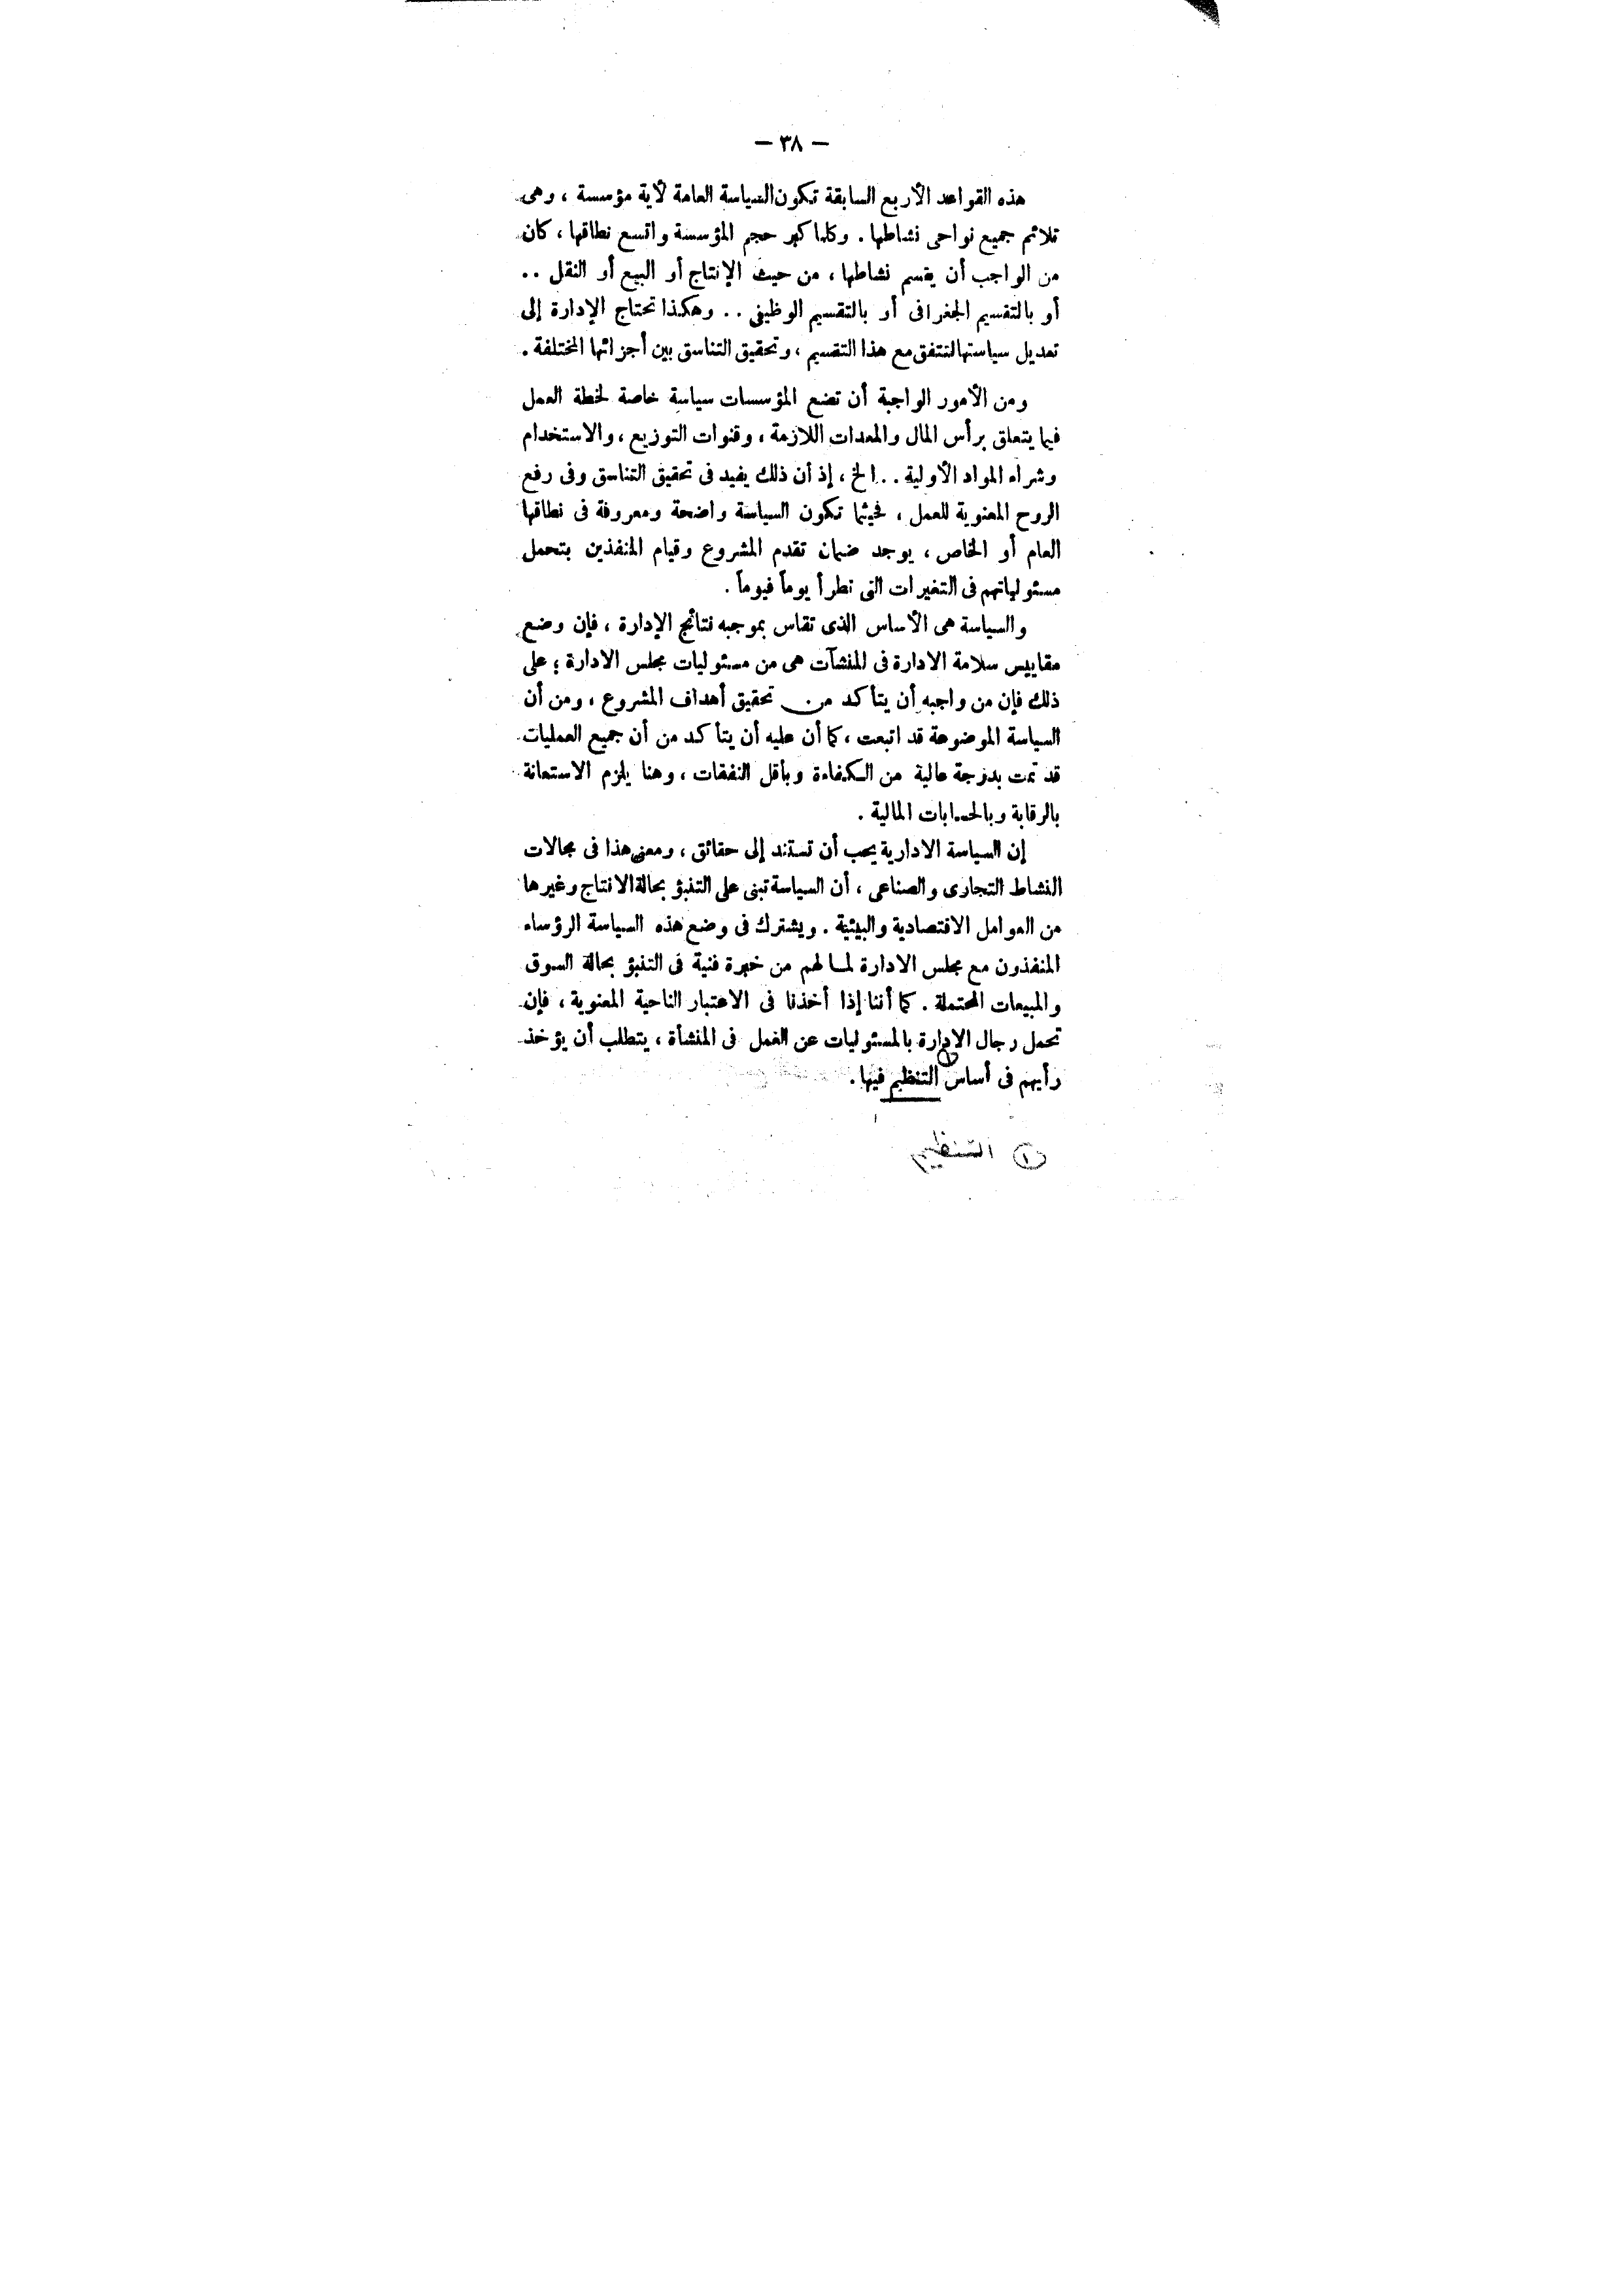 — ٣٨ —
هذه القواعد الأربع السابقة تكون السياسة العامة لأية مؤسسة ، وهى
تلائم جميع نواحى نشاطها . وكلما كبر حجم المؤسسة واتسع نطاقها ، كان
من الواجب أن يقسم نشاطها ، من حيث الإنتاج أو البيع أو النقل ..
أو بالتقسيم الجغرافى أو بالتقسيم الوظيفى .. وهكذا تحتاج الإدارة إلى
تعديل سياستها لتتفق مع هذا التقسيم ، وتحقيق التناسق بين أجزائها المختلفة .
ومن الأمور الواجبة أن تضع المؤسسات سياسة خاصة لخطة العمل
فيما يتعلق برأس المال والمعدات اللازمة ، وقنوات التوزيع ، والاستخدام
وشراء المواد الأولية .. الخ ، إذ أن ذلك يفيد فى تحقيق التناسق وفى رفع
الروح المعنوية للعمل ، فحيثما تكون السياسة واضحة ومعروفة فى نطاقها
العام أو الخاص ، يوجد ضمان تقدم المشروع وقيام المنفذين بتحمل
مسئولياتهم فى التغيرات التى تطرأ يوماً فيوماً .
والسياسة هى الأساس الذى تقاس بموجبه نتائج الإدارة ، فإن وضع
مقاييس سلامة الادارة فى المنشآت هى من مسئوليات مجلس الادارة ؛ على
ذلك فإن من واجبه أن يتأكد من تحقيق أهداف المشروع ، ومن أن
السياسة الموضوعة قد اتبعت ، كما أن عليه أن يتأكد من أن جميع العمليات
قد تمت بدرجة عالية من الكفاءة وبأقل النفقات ، وهنا يلزم الاستعانة
بالرقابة وبالحسابات المالية .
إن السياسة الادارية يجب أن تستند إلى حقائق ، ومعنى هذا فى مجالات
النشاط التجارى والصناعى ، أن السياسة تبنى على التنبؤ بحالة الانتاج وغيرها
من العوامل الاقتصادية والبيئية . ويشترك فى وضع هذه السياسة الرؤساء
المنفذون مع مجلس الادارة لما لهم من خبرة فنية فى التنبؤ بحالة السوق
والمبيعات المحتملة . كما أننا إذا أخذنا فى الاعتبار الناحية المعنوية ، فإن
تحمل رجال الادارة بالمسئوليات عن العمل فى المنشأة ، يتطلب أن يؤخذ
رأيهم فى أساس (١) التنظيم فيها .
(١) التنظيم